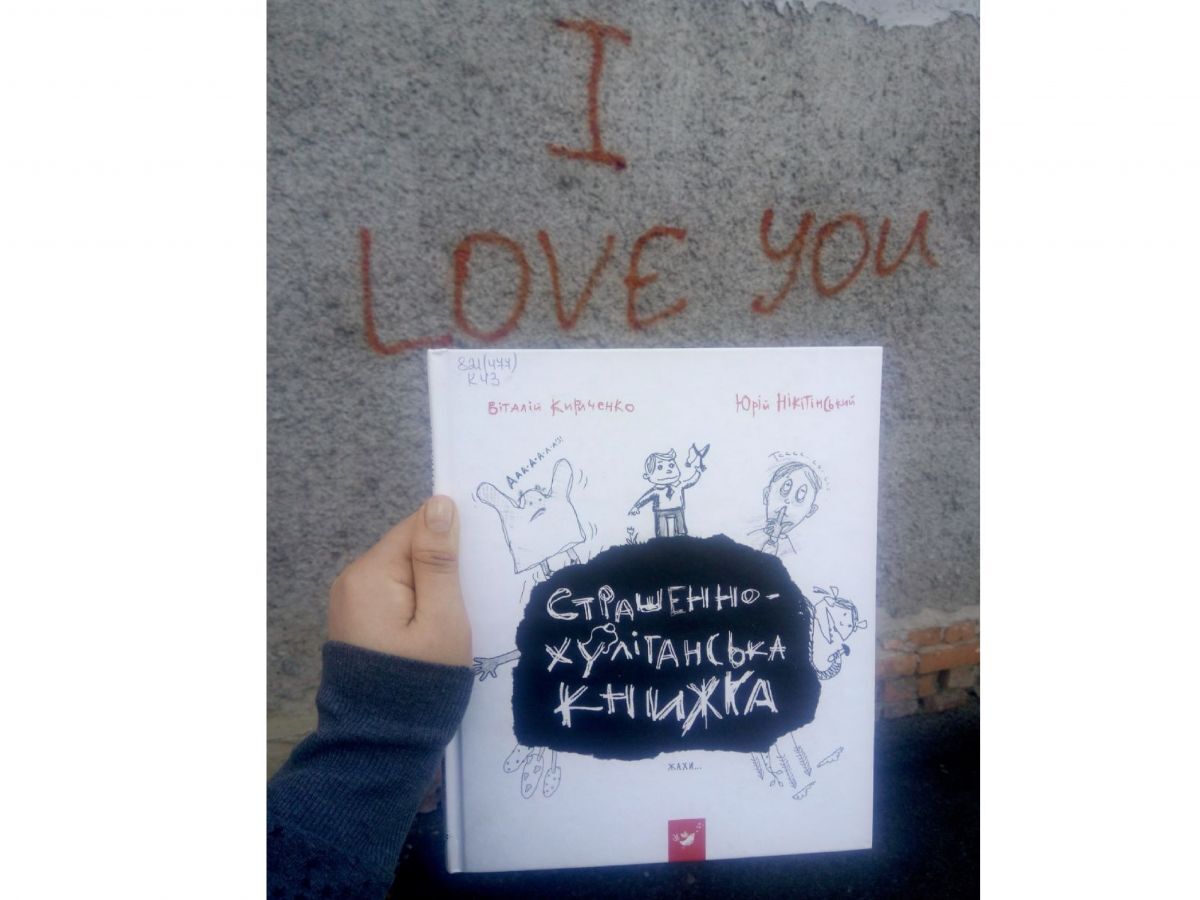 I
LOVE YOU
821(477)
К43
Віталій Кириченко
Юрій Нікітінський
СТРАШЕННО-
ХУЛІГАНСЬКА
КНИЖКА
ЖАХИ...